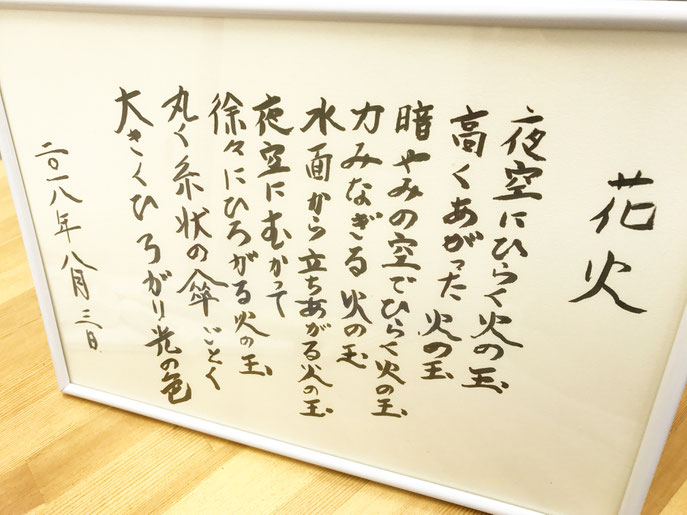 花火
夜空にひらく火の玉
高くあがった火の玉
暗やみの空でひらく火の玉
力みなぎる火の玉
水面から立ちあがる火の玉
夜空にむかって
徐々にひろがる火の玉
丸く糸状の傘ごとく
大きくひろがり光の色
二〇一八年八月三日